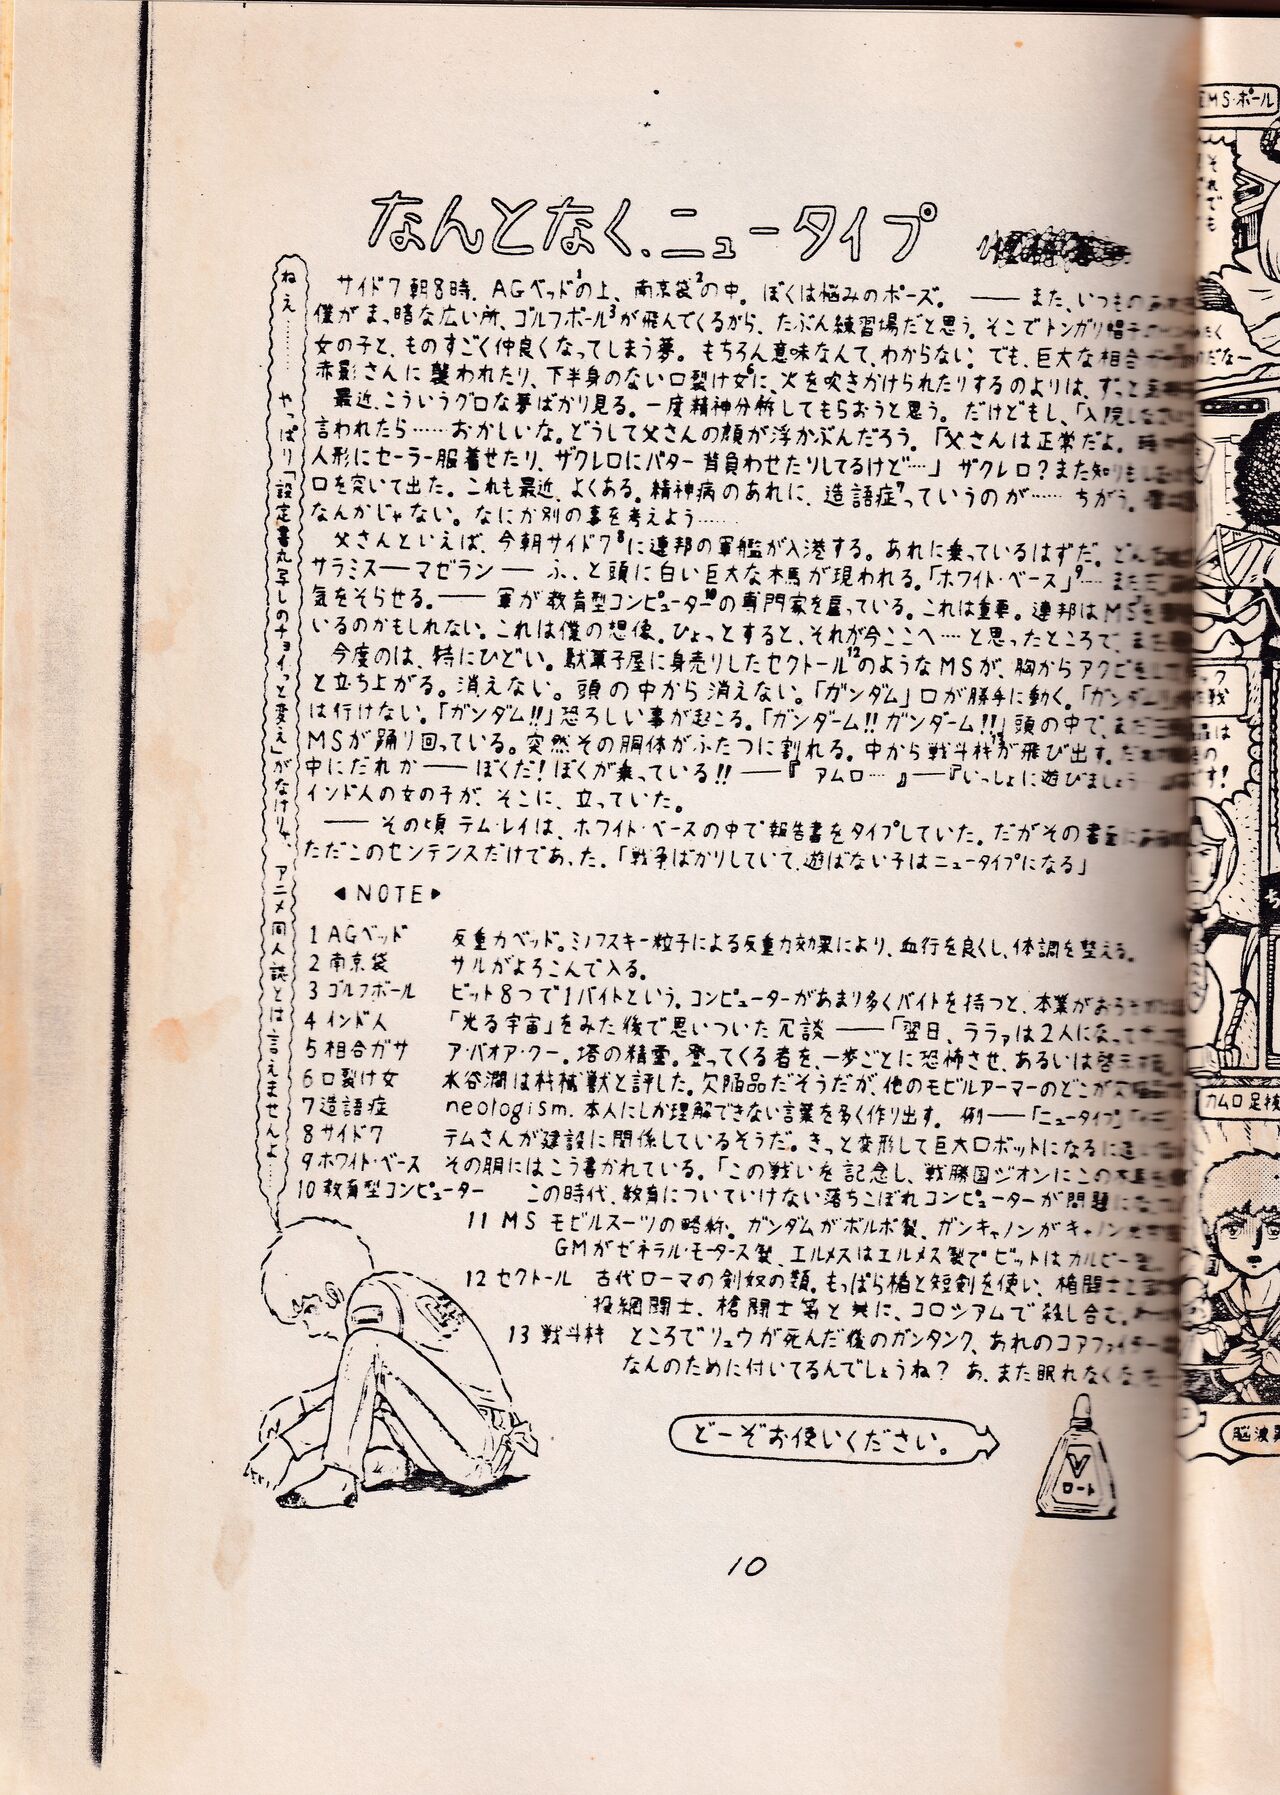 なんとなく、ニュータイプ
サイド7朝8時、AGベッド1の上、南京袋2の中。ぼくは悩みのポーズ。――また、いつもの
僕がまっ暗な広い所、ゴルフボール3が飛んでくるから、たぶん練習場だと思う。そこでトンガリ帽子
女の子と、ものすごく仲良くなってしまう夢。もちろん意味なんて、わからない。でも、巨大な相合
赤影さんに襲われたり、下半身のない口裂け女6に、火を吹きかけられたりするのよりは、ずっと
最近、こういうグロな夢ばかり見る。一度精神分析してもらおうと思う。だけどもし、「入院しな
言われたら……おかしいな。どうして父さんの顔が浮かぶんだろう。「父さんは正常だよ。時
人形にセーラー服着せたり、ザクレロにバター背負わせたりしてるけど…」ザクレロ?また知りもし
口を突いて出た。これも最近、よくある。精神病のあれに、造語症7っていうのが……ちがう。僕
なんかじゃない。なにか別の事を考えよう……
父さんといえば、今朝サイド78に連邦の軍艦が入港する。あれに乗っているはずだ。どん
サラミス――マゼラン――ふっと頭に白い巨大な木馬が現われる。「ホワイト・ベース」9…また
気をそらせる。――軍が教育型コンピューター10の専門家を雇っている。これは重要。連邦はMS
いるのかもしれない。これは僕の想像。ひょっとすると、それが今ここへ…と思ったところで、また
今度のは、特にひどい。駄菓子屋に身売りしたセクトール12のようなMSが、胸からアクビをして
と立ち上がる。消えない。頭の中から消えない。「ガンダム」口が勝手に動く。「ガンダム!」
は行けない。「ガンダム!!」恐ろしい事が起こる。「ガンダーム!!ガンダーム!!」頭の中で、まだ
MSが踊り回っている。突然その胴体がふたつに割れる。中から戦斗機13が飛び出す。
中にだれか――ぼくだ!ぼくが乗っている!!――『アムロ…』――『いっしょに遊びましょう
インド人の女の子が、そこに、立っていた。
――その頃テム・レイは、ホワイト・ベースの中で報告書をタイプしていた。だがその書
ただこのセンテンスだけであった。「戦争ばかりしていて、遊ばない子はニュータイプになる」
◀NOTE▶
1 AGベッド 反重力ベッド。ミノフスキー粒子による反重力効果により、血行を良くし、体調を整える。
2 南京袋 サルがよろこんで入る。
3 ゴルフボール ビット8つで1バイトという。コンピューターがあまり多くバイトを持つと、本業がおろそかに
4 インド人 「光る宇宙」をみた後で思いついた冗談――「翌日、ララァは2人になって
5 相合ガサ ア・バオア・クー。塔の精霊。登ってくる者を、一歩ごとに恐怖させ、あるいは啓示
6 口裂け女 水谷潤は機械獣と評した。欠陥品だそうだが、他のモビルアーマーのどこが欠陥
7 造語症 neologism. 本人にしか理解できない言葉を多く作り出す。例――「ニュータイプ」
8 サイド7 テムさんが建設に関係しているそうだ。きっと変形して巨大ロボットになるに違い
9 ホワイト・ベース その胴にはこう書かれている。「この戦いを記念し、戦勝国ジオンにこの木馬を
10 教育型コンピューター この時代、教育についていけない落ちこぼれコンピューターが問題になって
11 MS モビルスーツの略称。ガンダムがボルボ製、ガンキャノンがキャノン
GMがゼネラル・モータース製、エルメスはエルメス製でビットはカルビー
12 セクトール 古代ローマの剣奴の類。もっぱら楯と短剣を使い、楯闘士と
投網闘士、槍闘士等と共に、コロシアムで殺し合む。
13 戦斗機 ところでリュウが死んだ後のガンタンク、あれのコアファイター
なんのために付いてるんでしょうね?あ、また眠れなくな
ねえ………やっぱり「設定書丸写しのチョイっと変え」がなけりゃ、アニメ同人誌とは言えませんよ……
どーぞお使いください。
V
ロート
10
MS・ボール
それでも
カムロ足枝
脳波